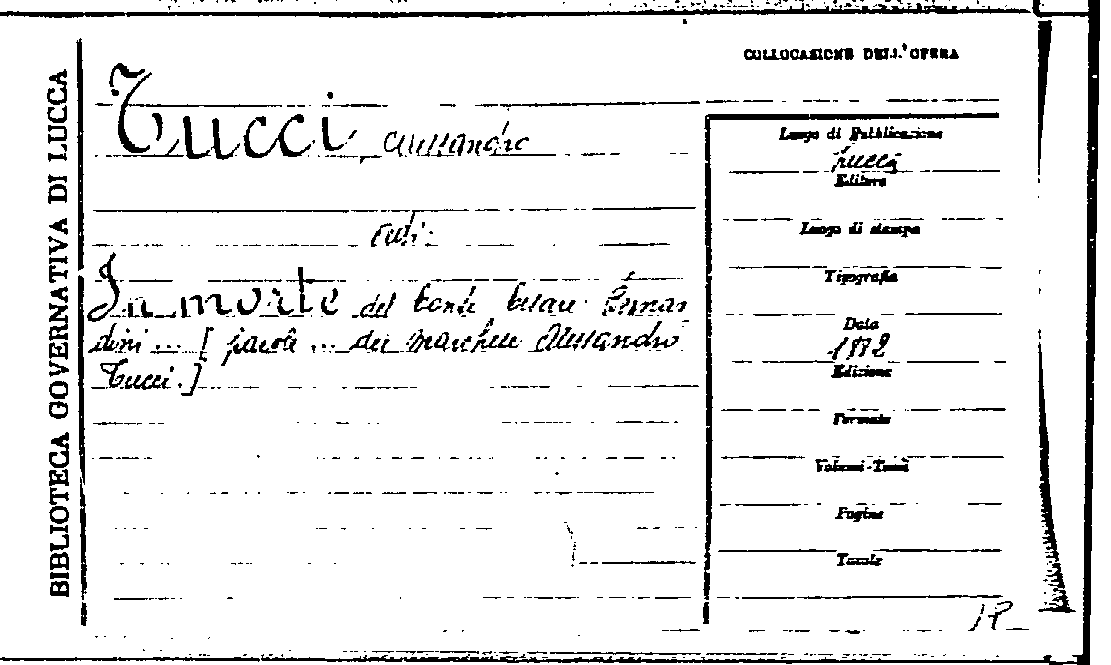 COLLOCAZIONE DELL'OPERA
BIBLIOTECA GOVERNATIVA DI LUCCA
Tucci, Alessandro
Luogo di Pubblicazione
Lucca
Editore
Luogo di stampa
vedi:
In morte del Conte Cesare Bernar
dini ... [ parole ... del marchese Alessandro
Tucci.]
Tipografia
Data
Edizione
Formato
Volumi-Tomi
Pagine
Tavole